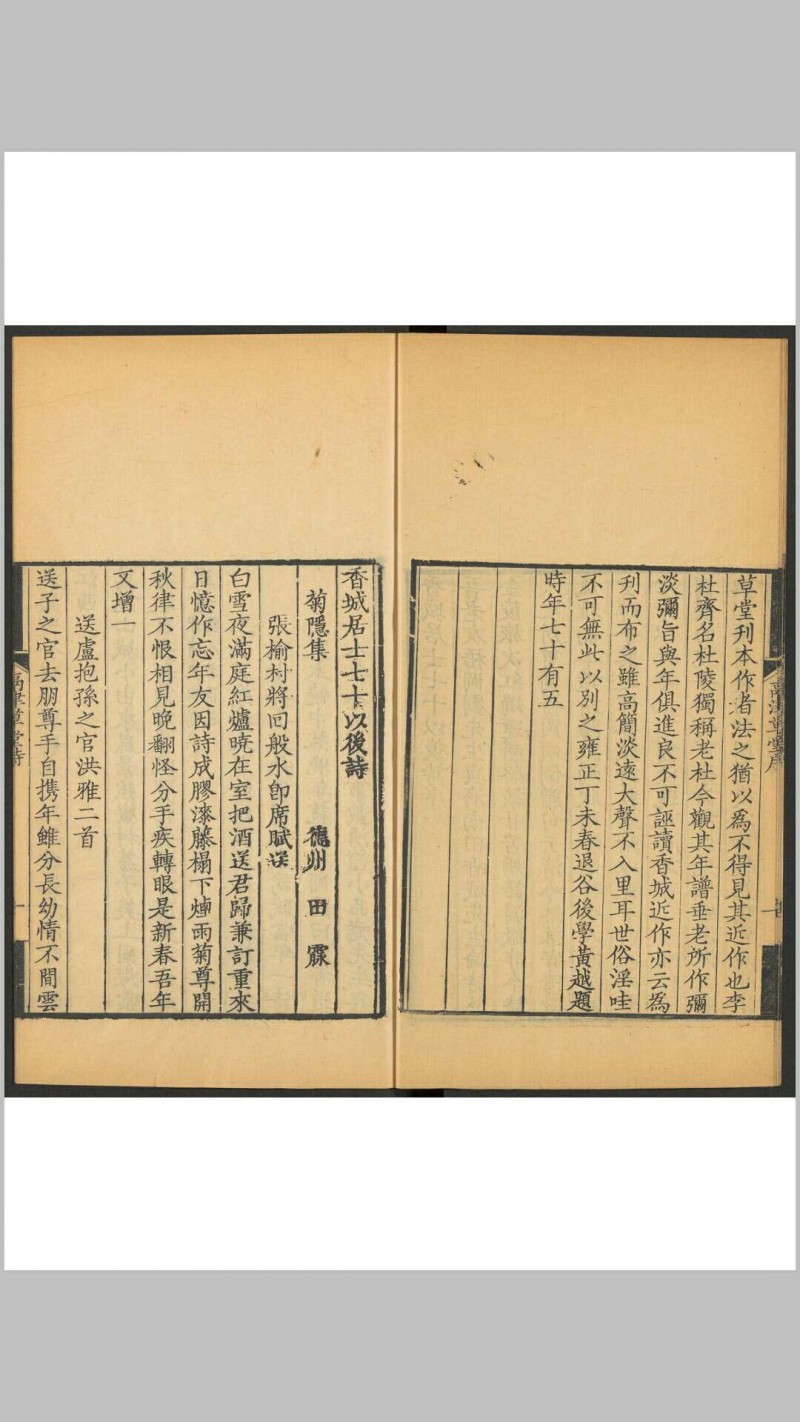 草堂刊本作者法之猶以為不得見其近作也李
杜齊名杜陵獨稱老杜今觀其年譜垂老所作彌
淡彌旨與年俱進良不可誣讀香城近作亦云為
刋而布之雖高簡淡遠大聲不入里耳世俗淫哇
不可無此以别之雍正丁未春退谷後學黃越題
時年七十有五
香城居士七十以後詩
菊隱集
德州 田霡
張榆村將囘般水卽席賦送
白雪夜滿庭紅爐曉在室把酒送君歸兼訂重來
日憶作忘年友因詩成膠漆藤榻下煙雨菊尊開
秋律不恨相見晚翻怪分手疾轉眼是新春吾年
又增一
送盧抱孫之官洪雅二首
送子之官去朋尊手自携年雖分長幼情不間雲
鬲津草堂詩
一